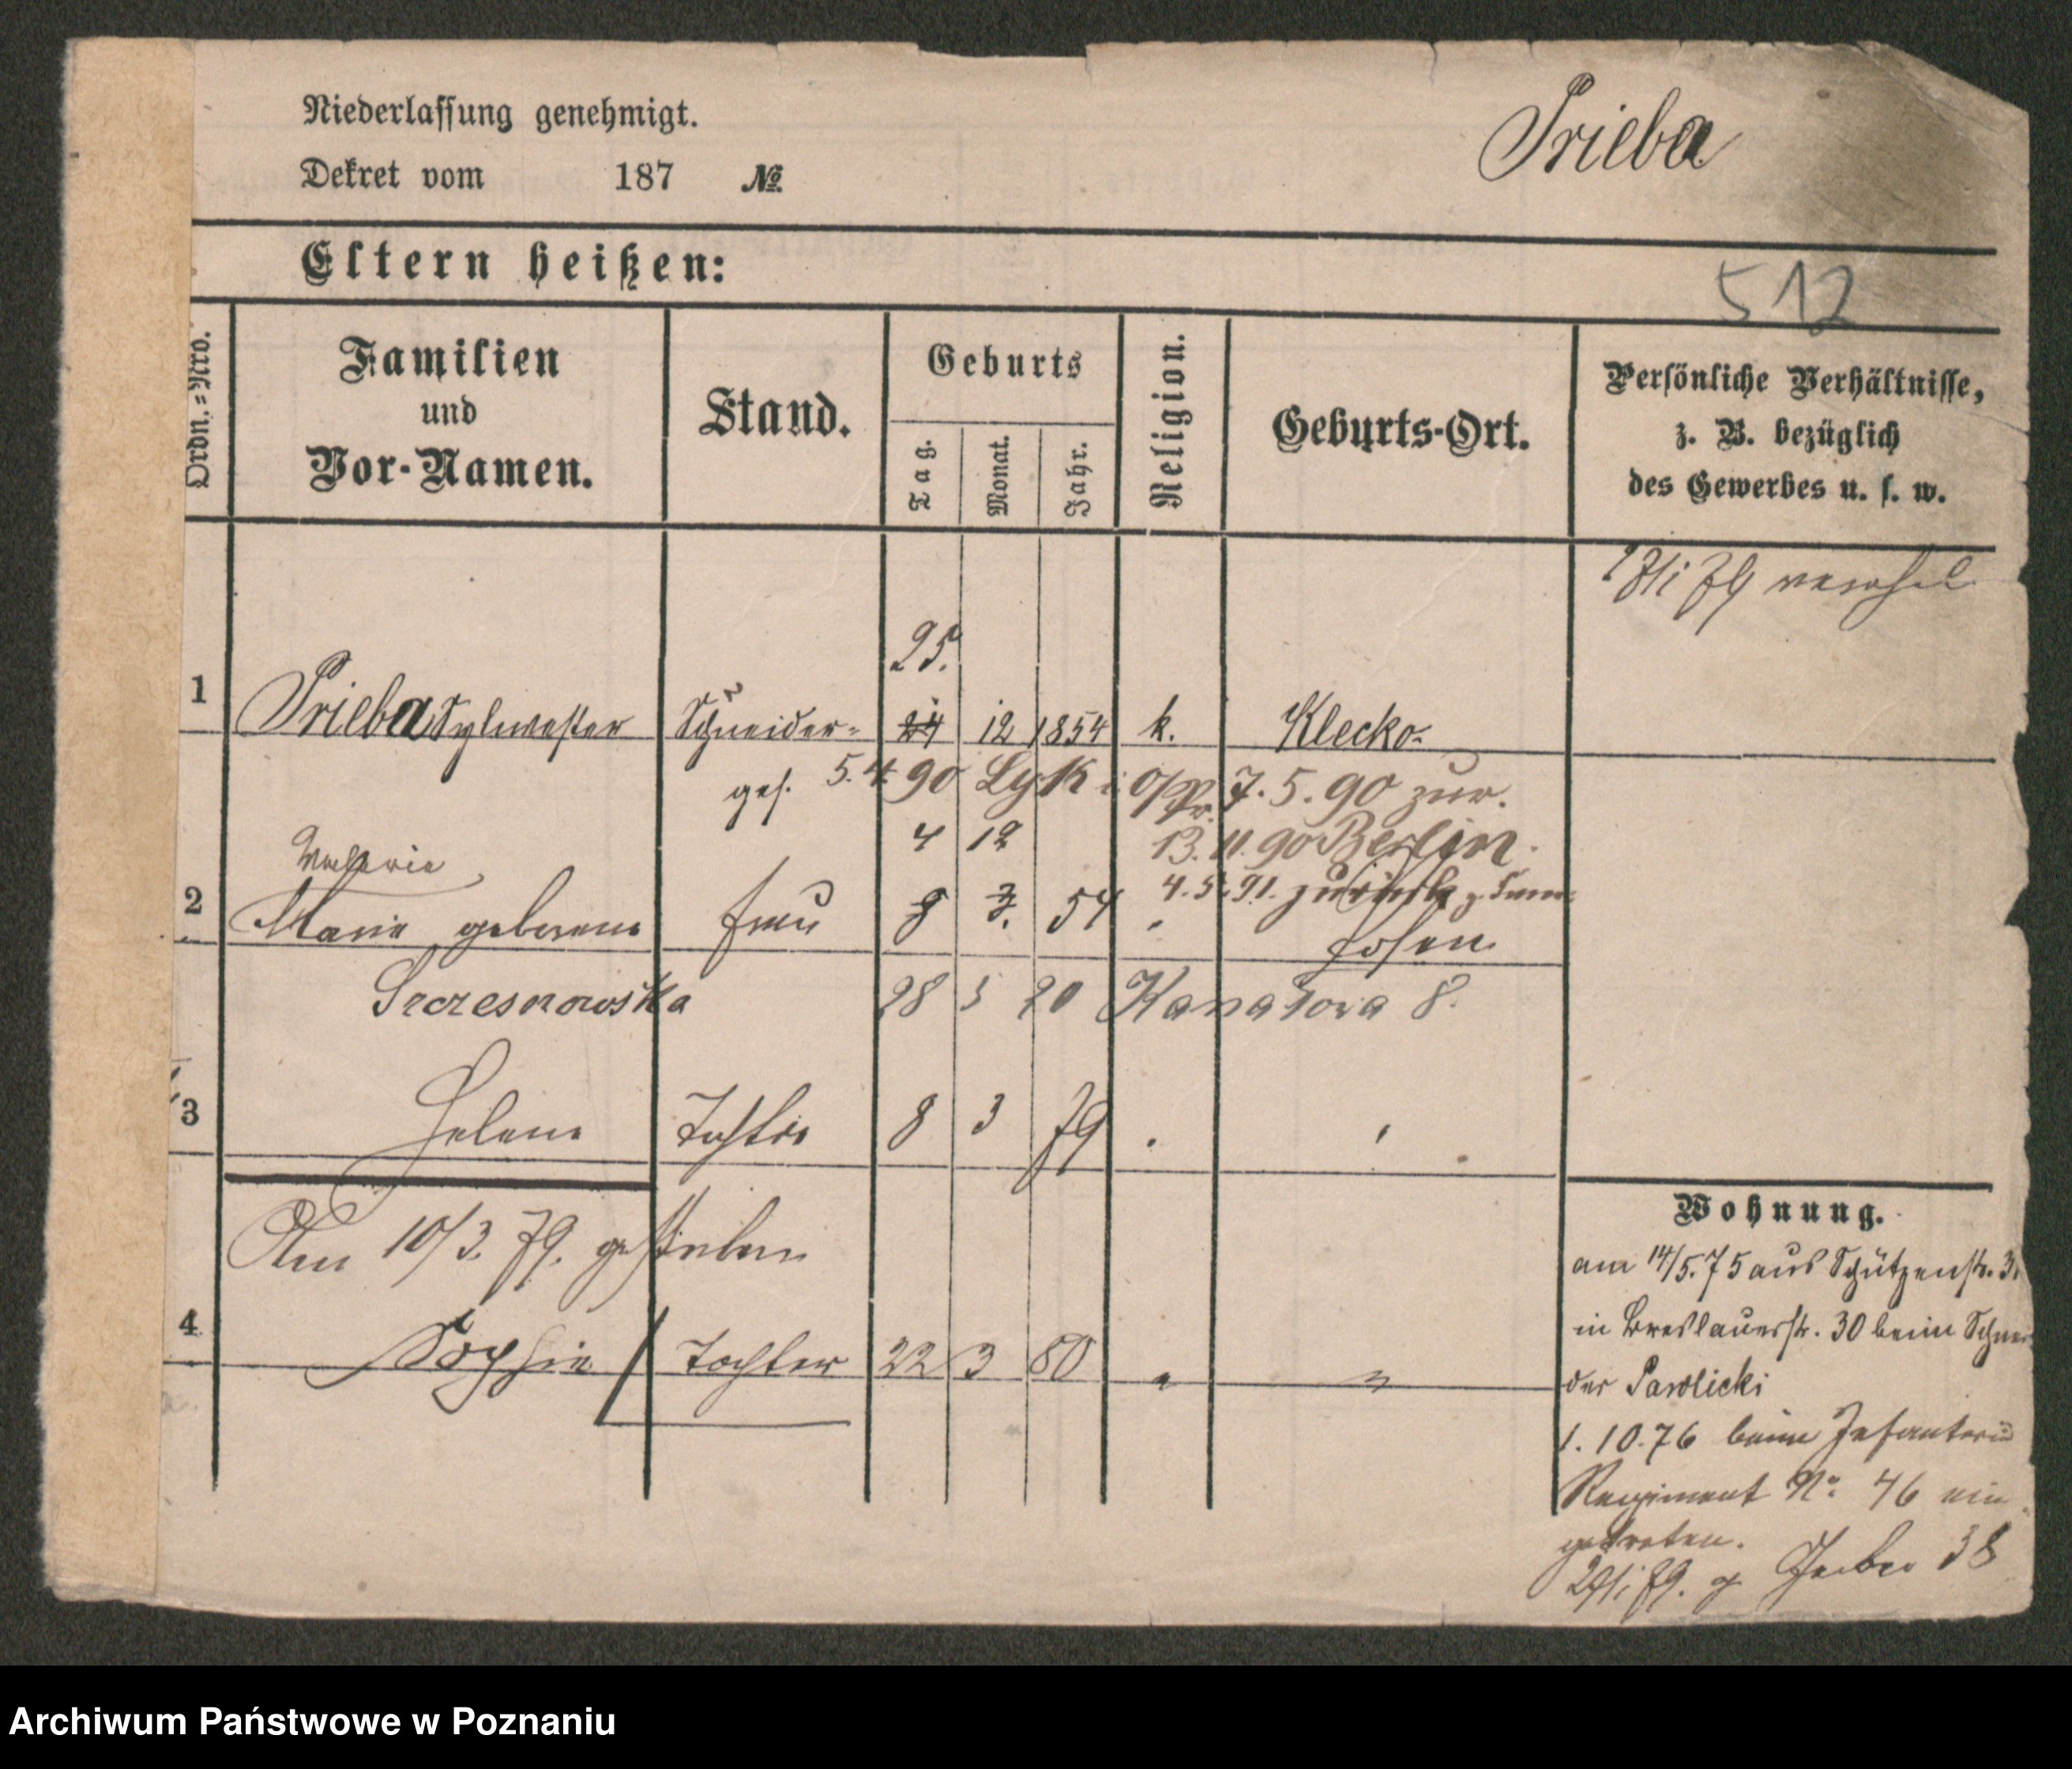 Niederlassung genehmigt.
Prieba
Dekret vom 187 No.
Eltern heißen:
512
Ordn.-Nro.
Familien
und
Vor-Namen.
Stand.
Geburts
Tag.
Monat.
Jahr.
Religion.
Geburts-Ort.
Persönliche Verhältnisse,
z. B. bezüglich
des Gewerbes u. s. w.
25.
1 Prieba Sylwester Schneider- 24 12 1854 k. Klecko
ges. 5.4 90 Lyk i O/Pr. 7. 5. 90 zur.
4 12 13. 11. 90 Berlin.
Valerie
4. 5. 91. zurück
2 Marie geborene Frau 8 7. 54 " Posen
Szczesnowska 28 3 20 Kanatowa 8.
3 Helene Tochter 8 3 79 " "
Am 10/3. 79. gestorben
4 Sophie Tochter 22 3 80 " "
Wohnung.
am 14/5.75 aus Schützenstr. 31
in Breslauerstr. 30 beim Schnei
der Pawlicki
1. 10. 76 beim Infanterie
Regiment No. 46 ein
getreten.
79. Gerber 38